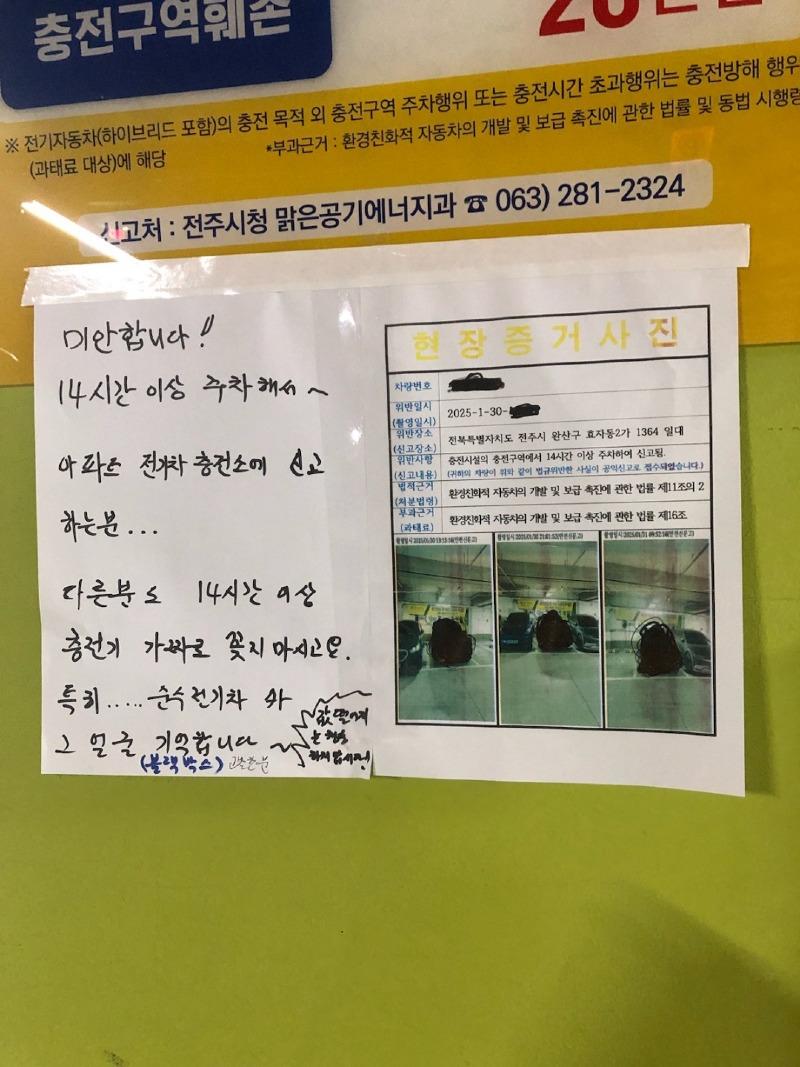 충전구역훼손
20만원
※ 전기자동차(하이브리드 포함)의 충전 목적 외 충전구역 주차행위 또는 충전시간 초과행위는 충전방해 행위
(과태료 대상)에 해당
*부과근거 : 환경친화적 자동차의 개발 및 보급 촉진에 관한 법률 및 동법 시행령
신고처 : 전주시청 맑은공기에너지과 ☎ 063) 281-2324
미안합니다!!
14시간 이상 주차해서~
아파트 전기차 충전소에 신고
하는분...
다른분도 14시간 이상
충전기 가짜로 꽂지 마시고요.
특히.....순수전기차 와
그 얼굴 기억합니다
(블랙박스)
현장증거사진
차량번호
위반일시
(촬영일시)
2025-1-30-
위반장소
(신고장소)
전북특별자치도 전주시 완산구 효자동2가 1364 일대
위반사항
(신고내용)
충전시설의 충전구역에서 14시간 이상 주차하여 신고됨.
(귀하의 차량이 위와 같이 법규위반한 사실이 공익신고로 접수되었습니다.)
법적근거
(처분법령)
환경친화적 자동차의 개발 및 보급 촉진에 관한 법률 제11조의 2
부과근거
(과태료)
환경친화적 자동차의 개발 및 보급 촉진에 관한 법률 제16조